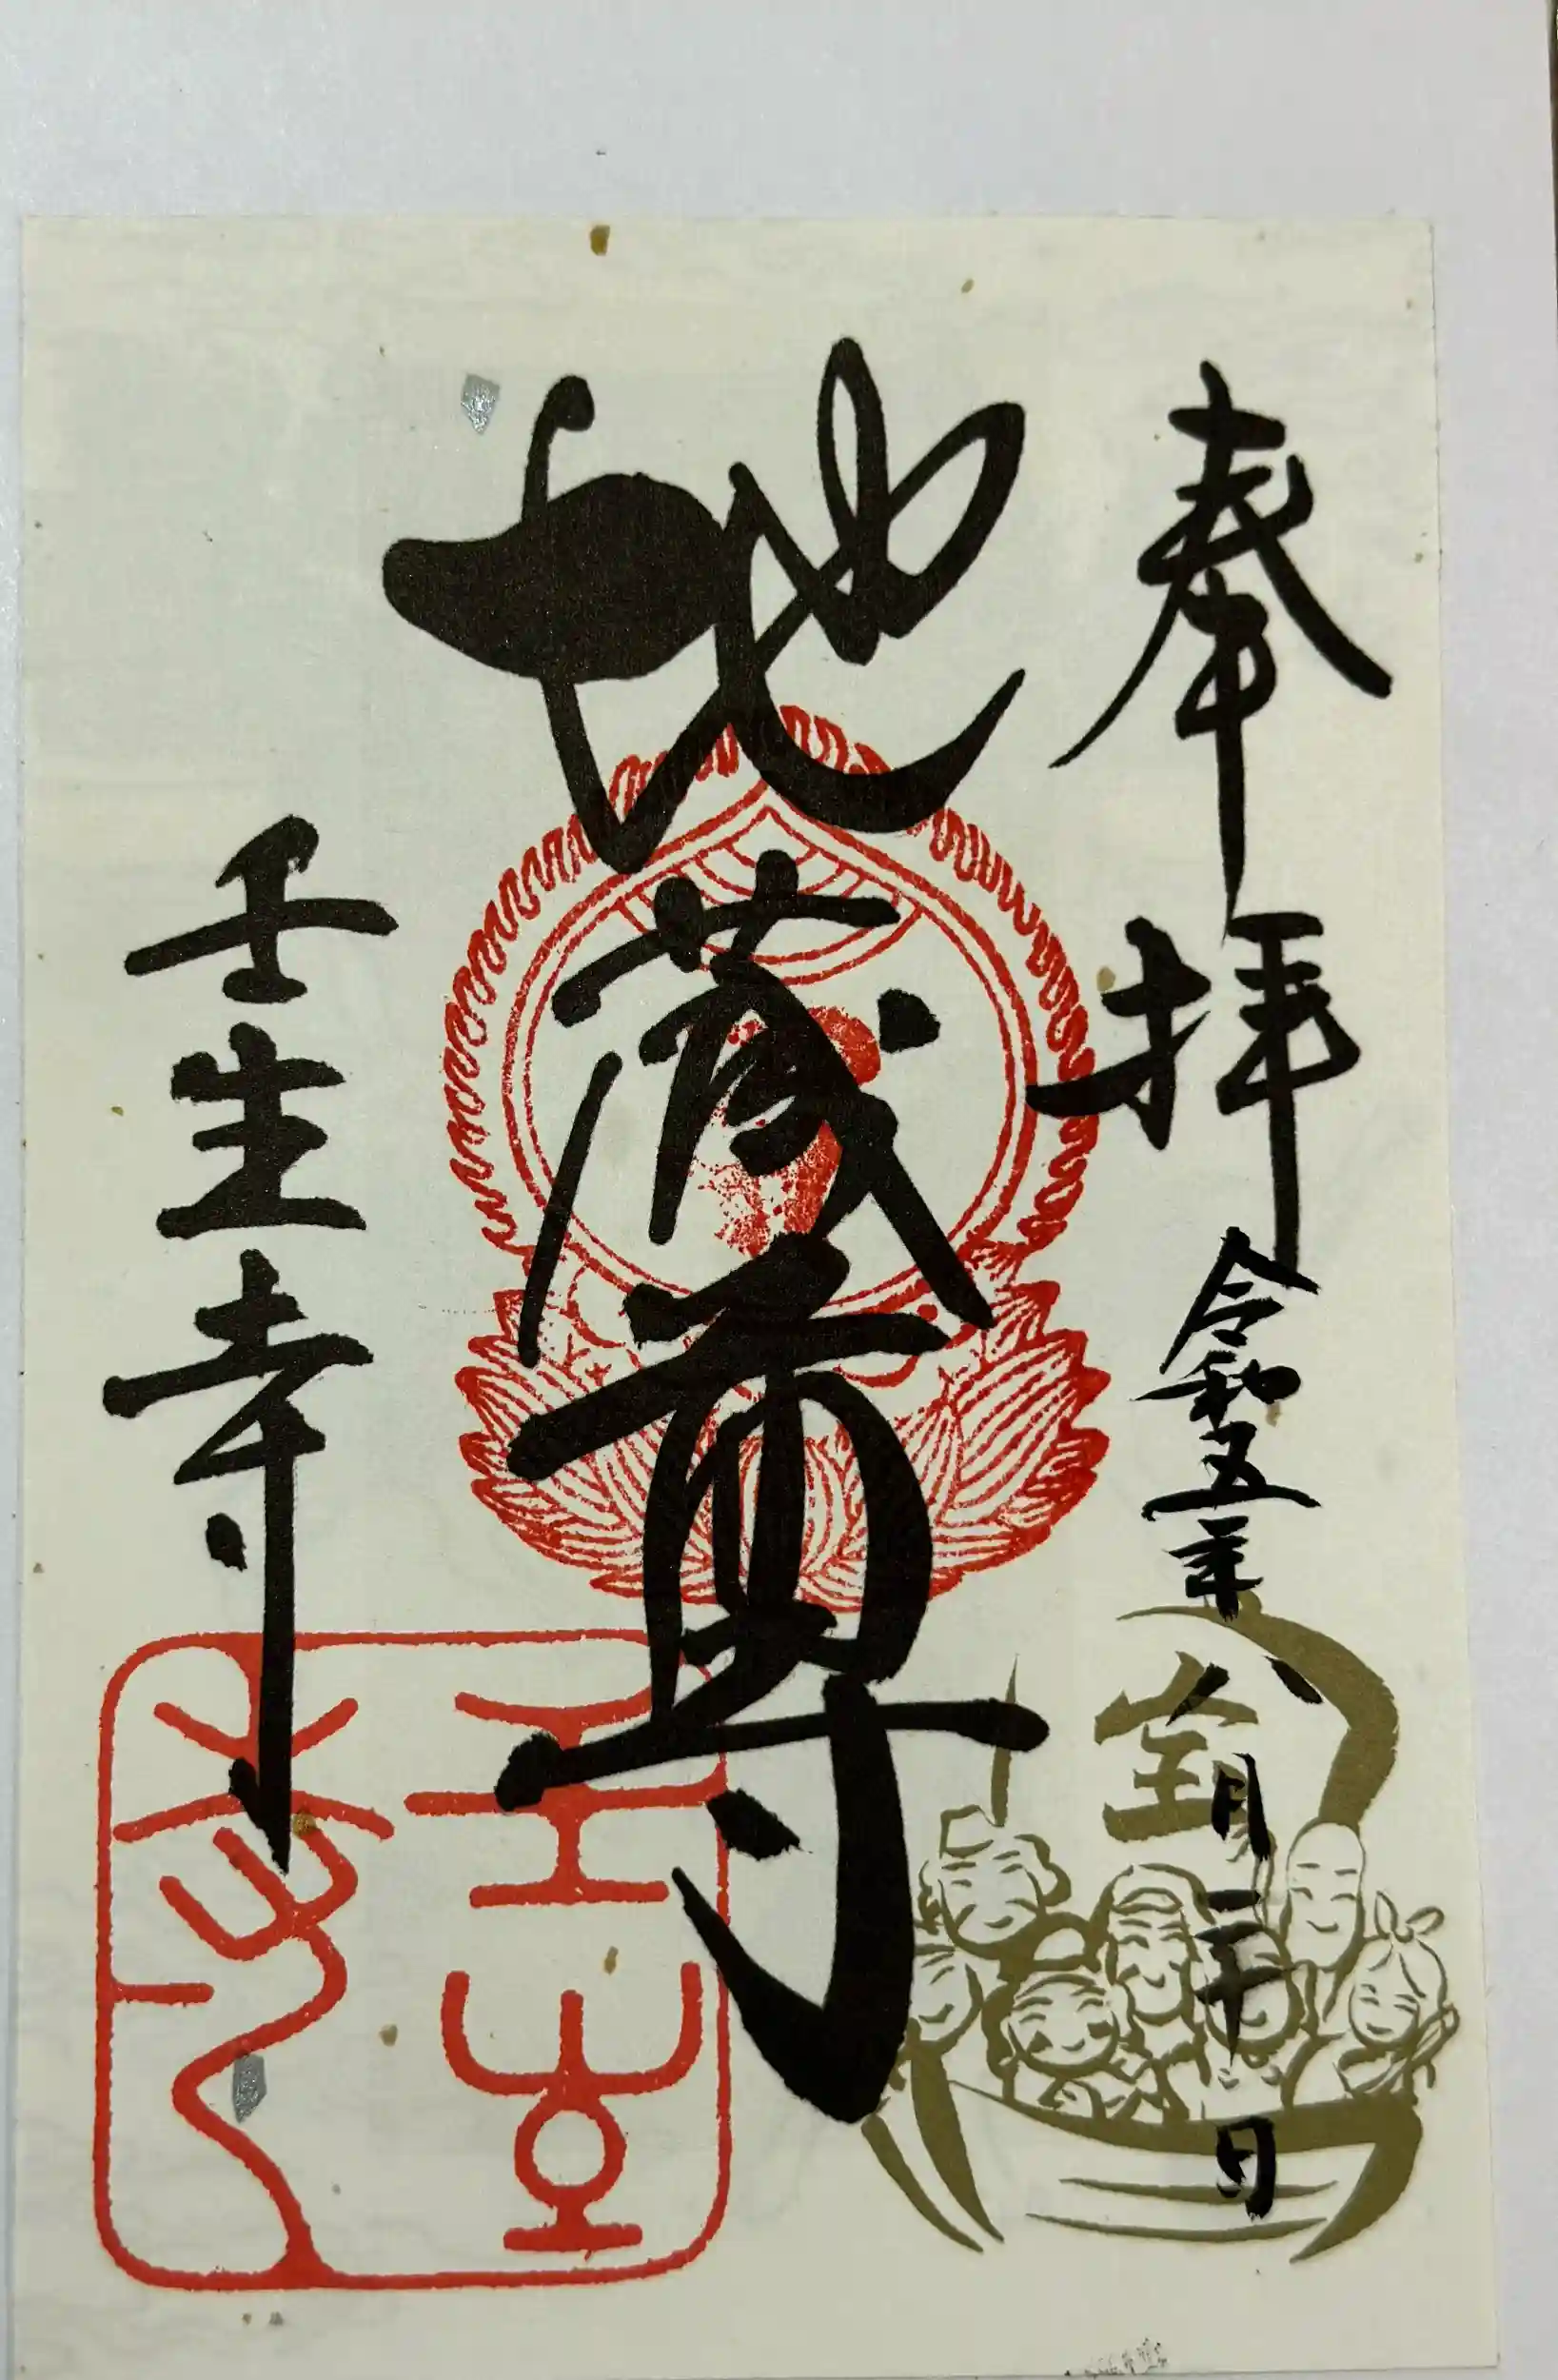 奉拝
令和五年八月二十日
宝
地蔵尊
壬生寺